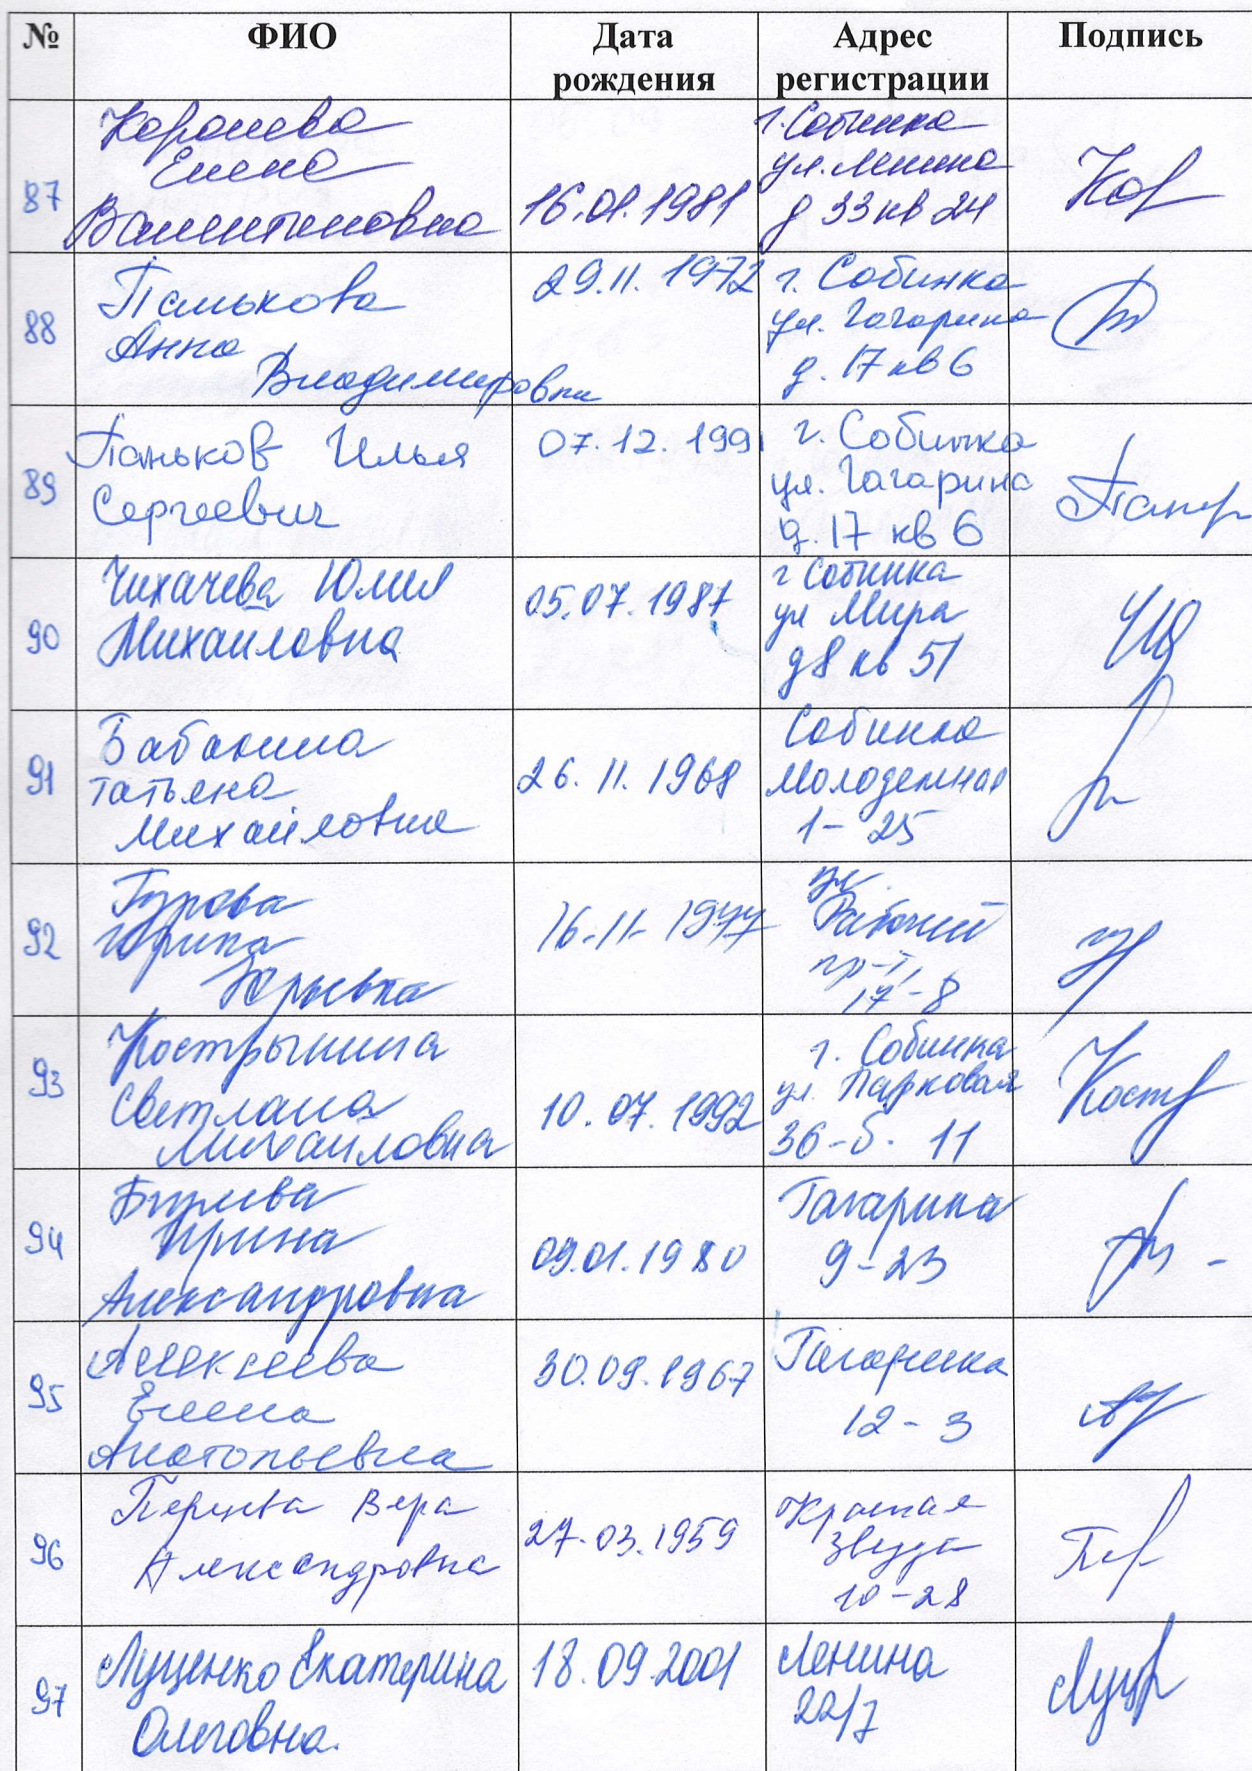 № ФИО Дата рождения Адрес регистрации Подпись
87
Королева
Елена
Валентиновна
16.01.1981
г. Собинка
ул. Ленина
д 33 кв 24
Кор
88
Панькова
Анна
Владимировна
29.11.1972
г. Собинка
ул. Гагарина
д. 17 кв 6
89
Паньков Илья
Сергеевич
07.12.1991
г. Собинка
ул. Гагарина
д. 17 кв 6
90
Чихачева Юлия
Михайловна
05.07.1987
г Собинка
ул Мира
д 8 кв 51
91
Бабакина
Татьяна
Михайловна
26.11.1968
Собинка
Молодежная
1-25
92
Гурова
Ирина
Юрьевна
16.11.1977
ул.
Рабочий
пр-т,
17-8
93
Кострыкина
Светлана
Михайловна
10.07.1992
г. Собинка
ул. Парковая
36-б. 11
Кост
94
Ирина
Александровна
09.01.1980
Гагарина
9-23
95
Алексеева
Елена
Анатольевна
30.09.1967
Гагарина
12-3
96
Вера
Александровна
27.03.1959
Красная
Звезда
10-28
97
Лущенко Екатерина
Олеговна.
18.09.2001
Ленина
22/7